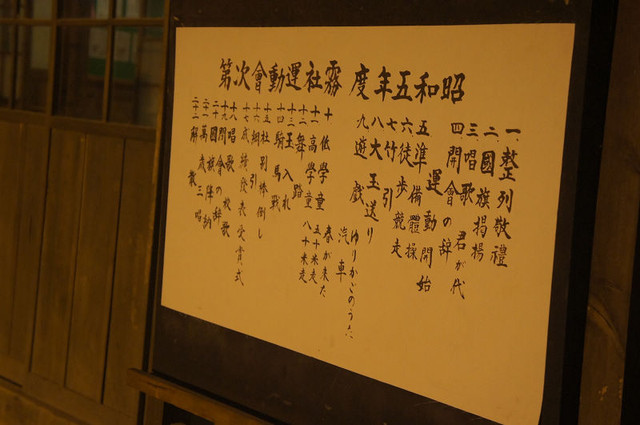 昭和五年度 霧社運動會次第
一、整列敬禮
二、國旗揭揚
三、唱歌 君が代
四、開會の辞
運動開始
五 準備體操
六 徒歩競走
七 竹引
八 大玉送り
九 遊戲 ゆりかごのうた
汽車
十 低學童 春が来た
十一 高學童 五十米走
十二 舞路 八十米走
十三 玉入れ
十四 騎馬戰
十五 社別棒倒し
十六 綱引
十七 成績発表受賞式
十八 唱歌 校歌
十九 閉會の辞
二十 國旗降納
二十一 萬歳三唱
二十二 解散